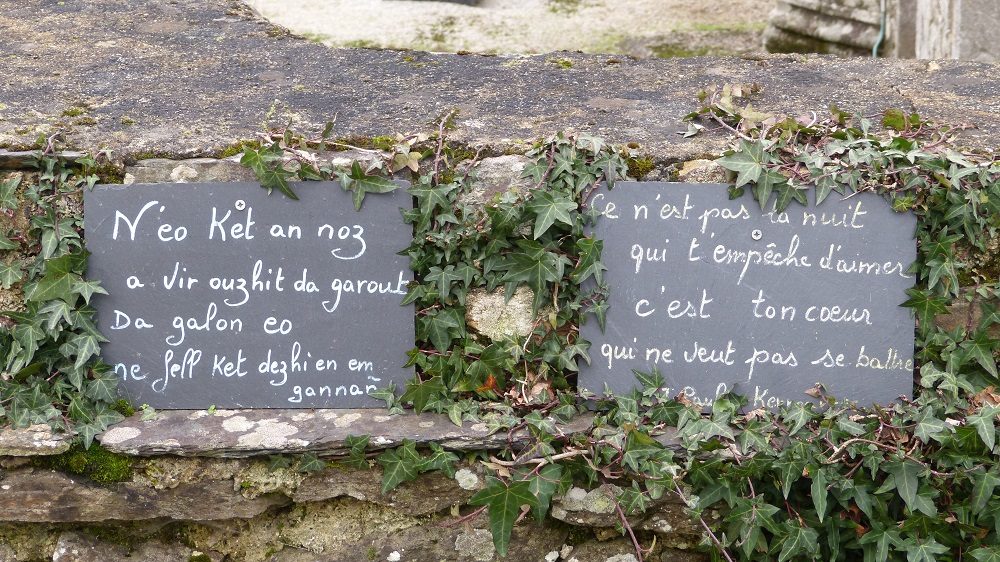 N'éo Ket an noz
a vir ouzhit da garout
Da galon eo
ne fell Ket dezhi en em
gannañ
Ce n'est pas la nuit
qui t'empêche d'aimer
c'est ton coeur
qui ne veut pas se battre